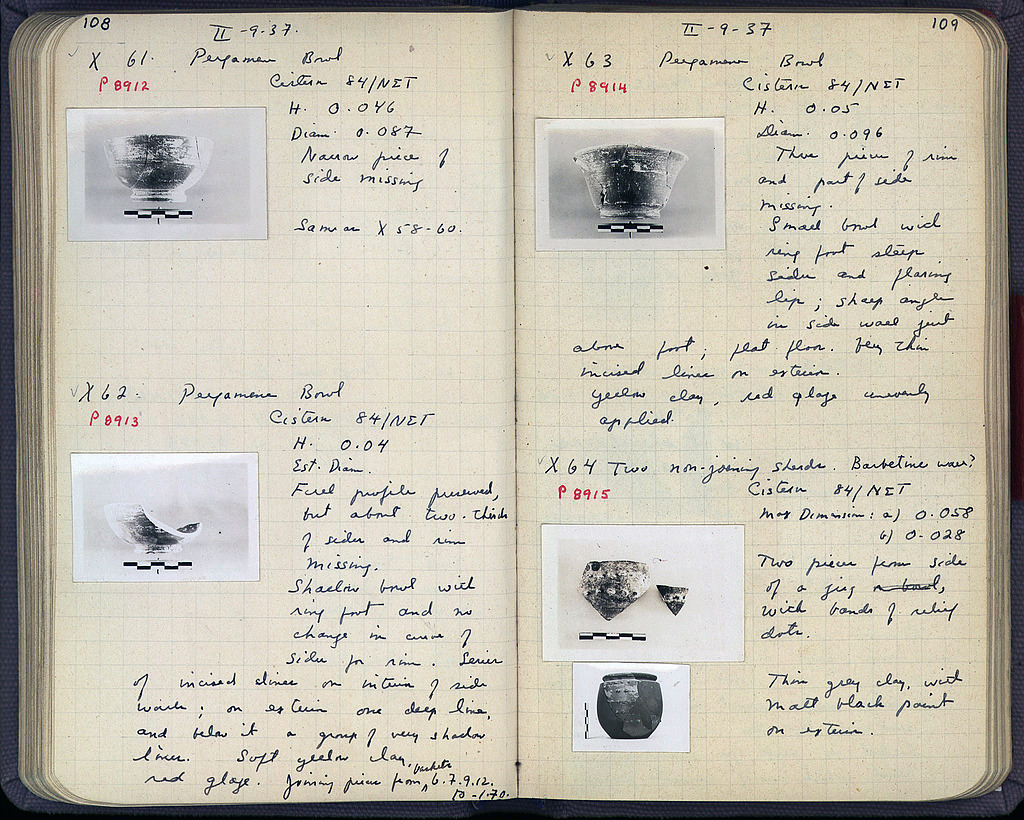 108
II -9-37.
X 61. Pergamene Bowl
P 8912
Cistern 84/NET
H. 0.046
Diam. 0.087
Narrow piece of
side missing
Same as X 58-60.
X 62. Pergamene Bowl
P 8913
Cistern 84/NET
H. 0.04
Est. Diam.
Full profile preserved,
but about two-thirds
of sides and rim
missing.
Shallow bowl with
ring foot and no
change in curve of
sides for rim. Series
of incised lines on interior of side
walls; on exterior one deep line,
and below it a group of very shallow
lines. Soft yellow clay,
red glaze. Joining pieces from baskets 6.7.9.12.
10-1.70.
109
II -9-37
X 63 Pergamene Bowl
P 8914
Cistern 84/NET
H. 0.05
Diam. 0.096
Three pieces of rim
and part of side
missing.
Small bowl with
ring foot steep
sides and flaring
lip; sharp angle
in side wall just
above foot; flat floor. Very thin
incised lines on exterior.
yellow clay, red glaze unevenly
applied.
X 64 Two non-joining sherds. Barbotine ware?
P 8915
Cistern 84/NET
Max Dimension: a) 0.058
b) 0.028
Two pieces from side
of a jug or bowl,
with bands of relief
dots.
Thin grey clay, with
matt black paint
on exterior.